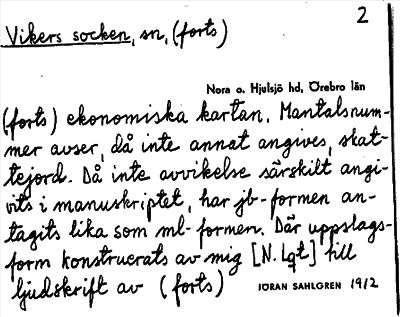 2
Vikers socken, sn, (forts)
Nora o. Hjulsjö hd, Örebro län
(forts) ekonomiska kartan. Mantalsnum-
mer avser, då inte annat angives, skat-
tejord. Då inte avvikelse särskilt angi-
vits i manuskriptet, har jb-formen an-
tagits lika som ml-formen. Där uppslags-
form konstruerats av mig [N. Lgt] till
ljudskrift av (forts) JÖRAN SAHLGREN 1912